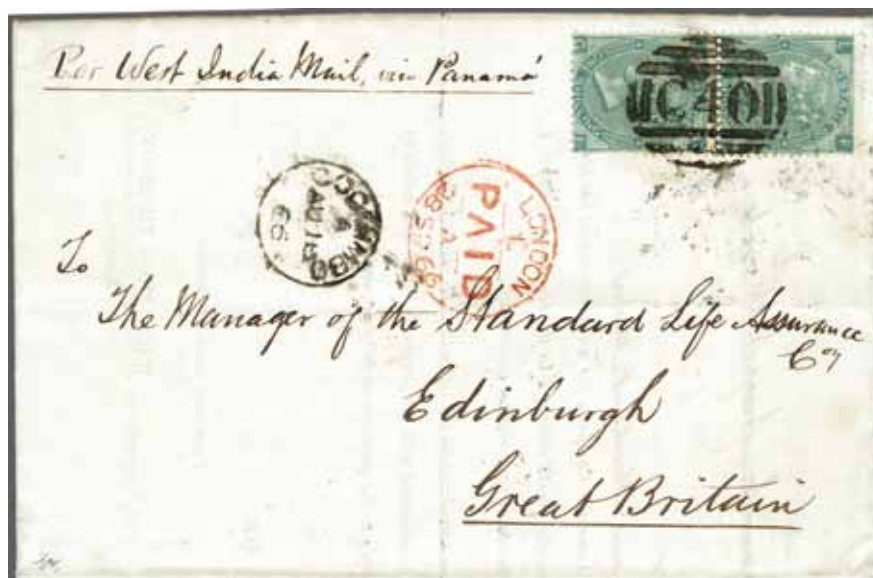 Per West India Mail, via Panamá
C40
COQUIMBO
A
AU 15
69
LONDON
PAID
28 SP 69
To
The Manager of the Standard Life Assurance
Coy
Edinburgh
Great Britain